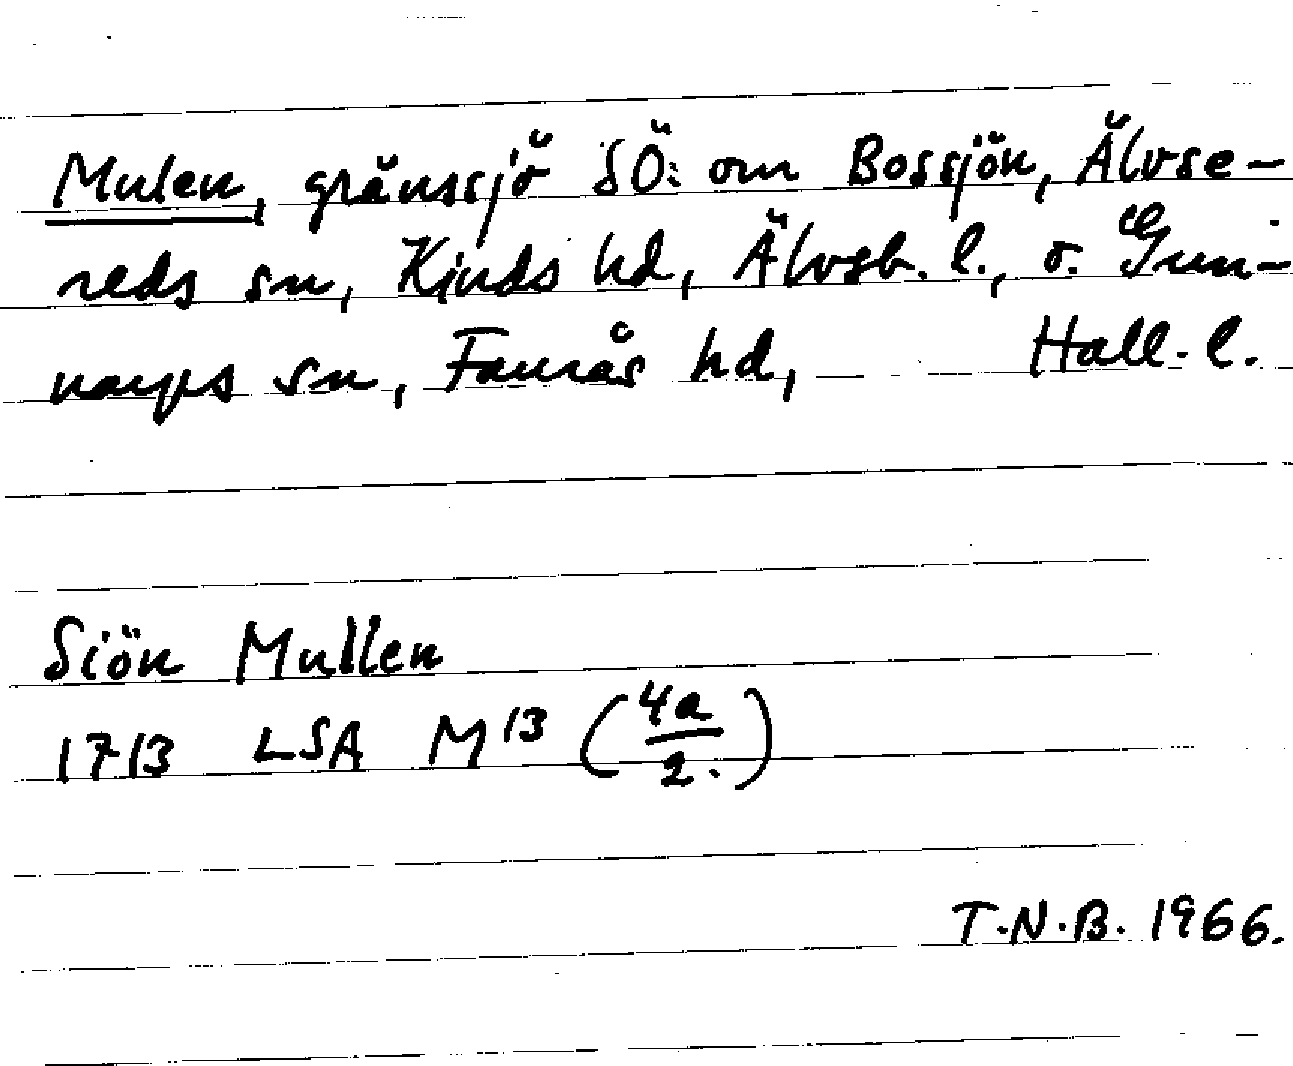 Mulen, gränssjö SÖ: om Bossjön, Älvse-
reds sn, Kinds hd, Älvsb. l., o. Gun-
narps sn, Faurås hd, Hall. l.
Siön Mullen
1713 LSA M 13 (4a/2.)
T.N.B. 1966.